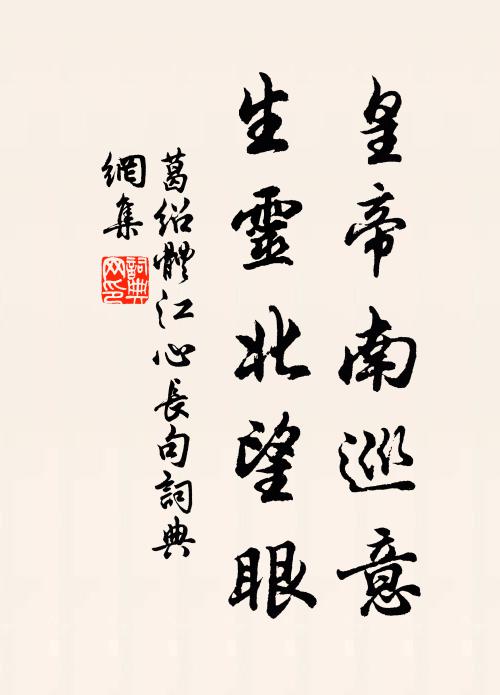 皇帝南巡意
生靈北望眼
葛绍體江心長句詞典
網集
詞典网印